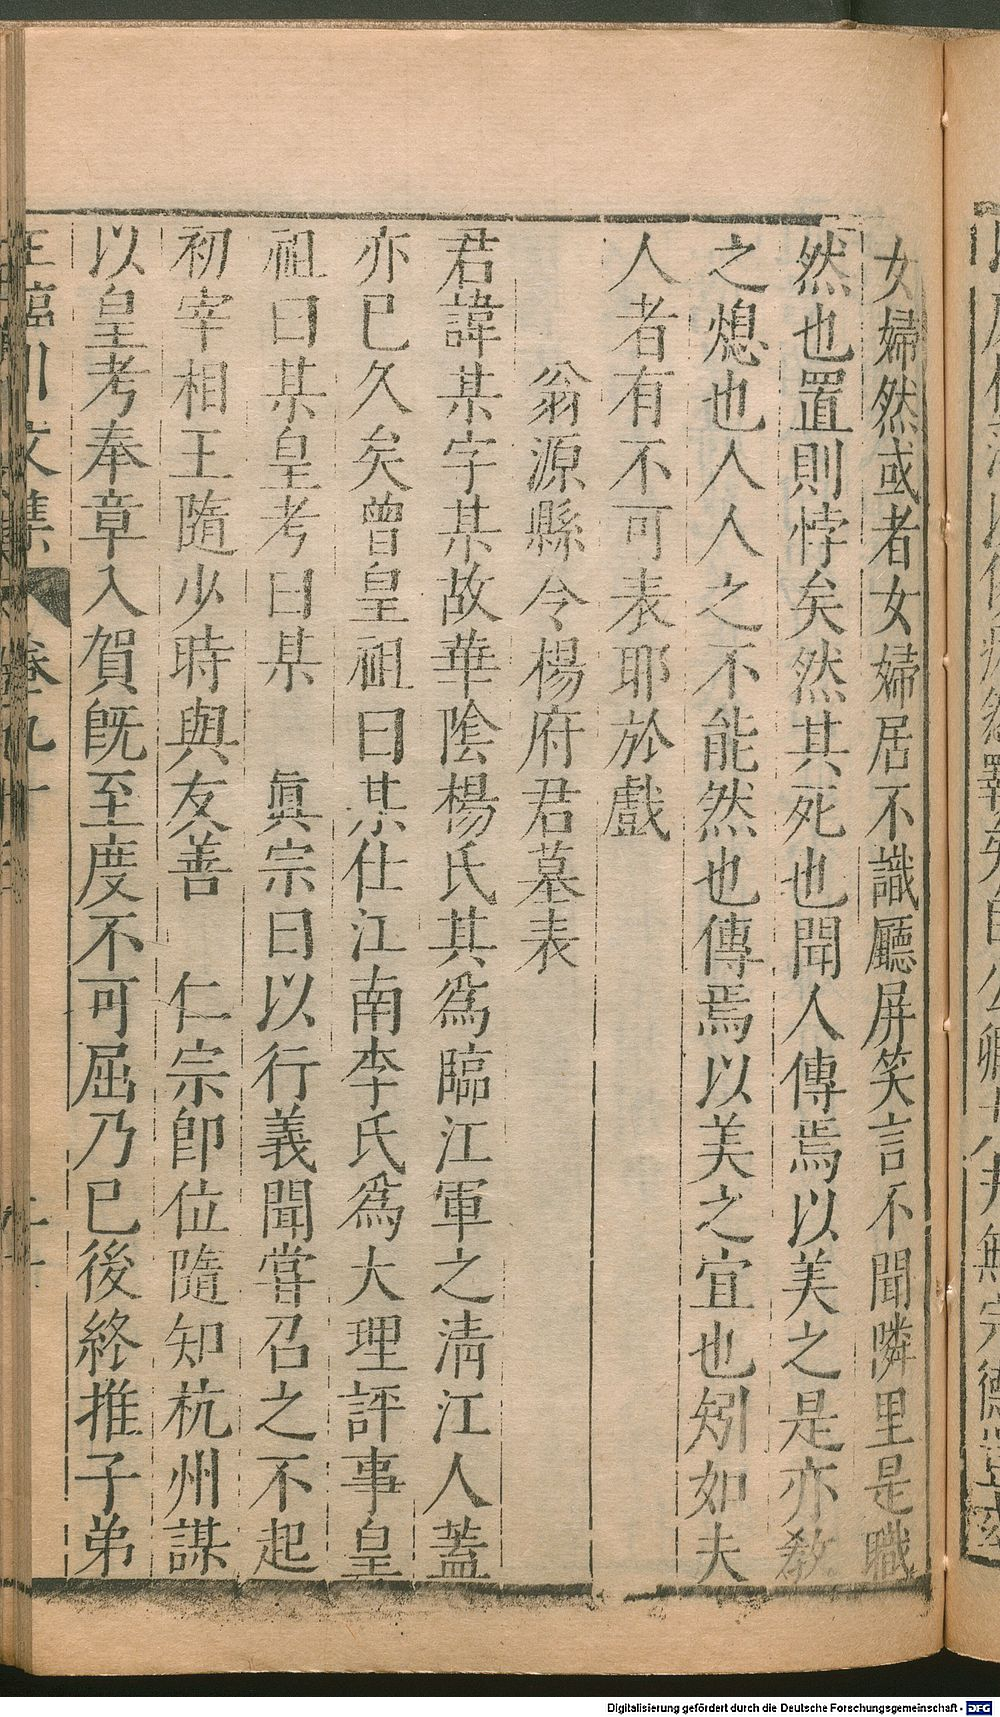 女婦然或者女婦居不識廳屏笑言不聞隣里是職
然也置則悖矣然其死也聞人傳焉以美之是亦教
之熄也人人之不能然也傳焉以美之宜也矧如夫
人者有不可表耶於戲
翁源縣令楊府君墓表
君諱某字某故華陰楊氏其爲臨江軍之淸江人蓋
亦已久矣曾皇祖曰某仕江南李氏爲大理評事皇
祖曰某皇考曰某　眞宗曰以行義聞嘗召之不起
初宰相王隨少時與友善　仁宗卽位隨知杭州謀
以皇考奉章入賀旣至度不可屈乃已後終推子弟
王臨川文集　卷九十
Digitalisierung gefördert durch die Deutsche Forschungsgemeinschaft - DFG